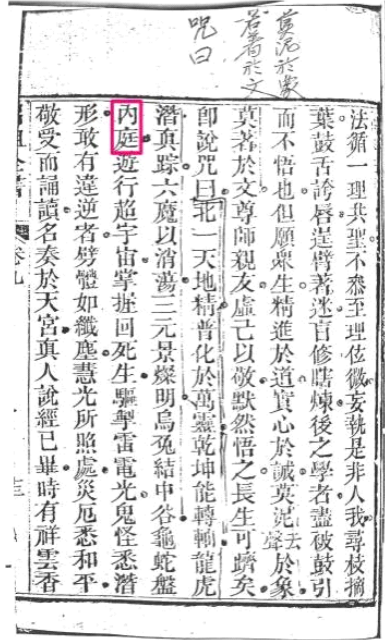 莫泥於象
若著於文
咒曰
法一理共聖不叅至理位微妄執是非人我尋枝摘
葉鼓舌誇唇逞臂著迷盲修瞎煉後之學者盡被鼓引
而不悟也但願衆生精進於道實心於誠莫泥去聲於象
莫著於文尊師親友虛己以敬默然悟之長生可躋矣
卽說咒曰北一天地精普化於萬靈乾坤能轉軸龍虎
潛眞踪六魔以消蕩三元景燦明烏兔結中谷龜蛇盤
內庭遊行超宇宙掌握回死生驅掣雷電光鬼怪悉潛
形敢有違逆者劈體如纖塵慧光所照處災厄悉和平
敬受而誦讀名奏於天宮眞人說經已畢時有祥雲香
祖全書
卷九